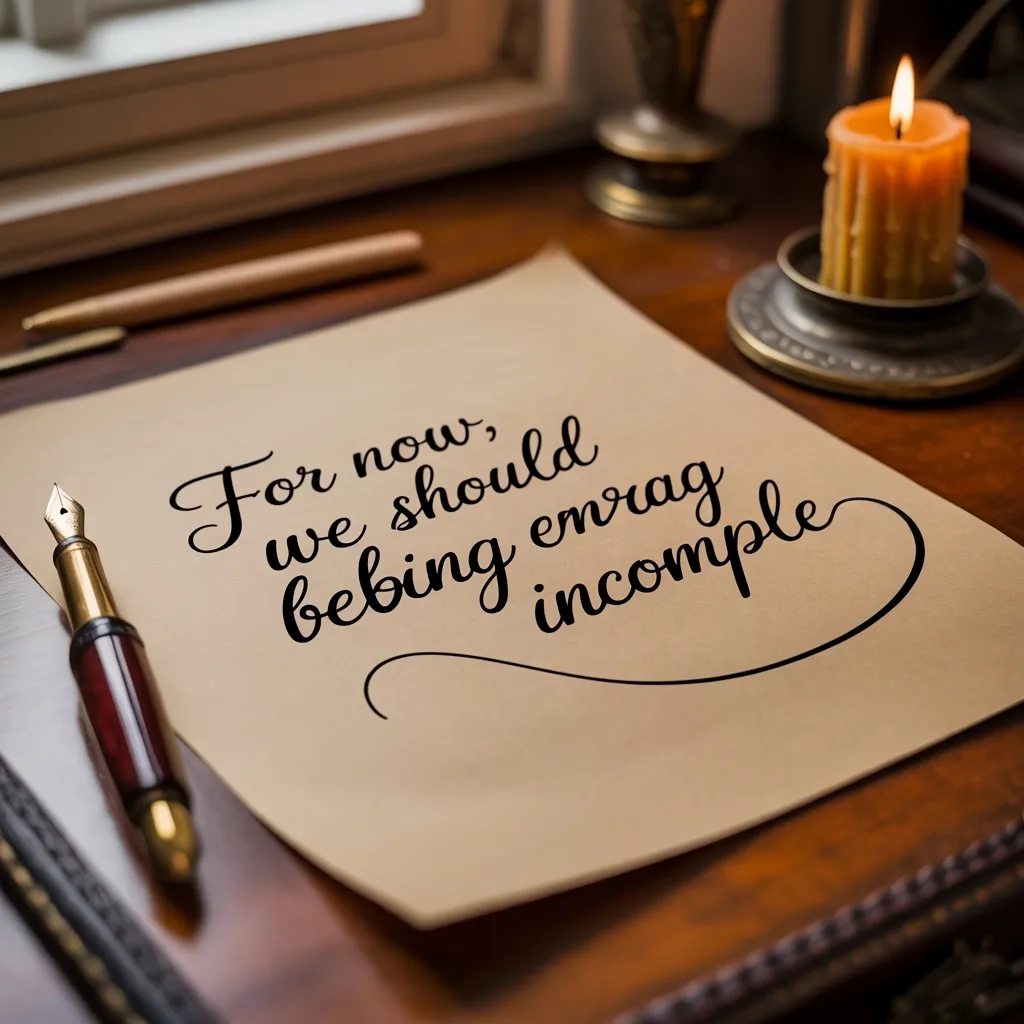 For now,
we should
bebing emrag
incomple